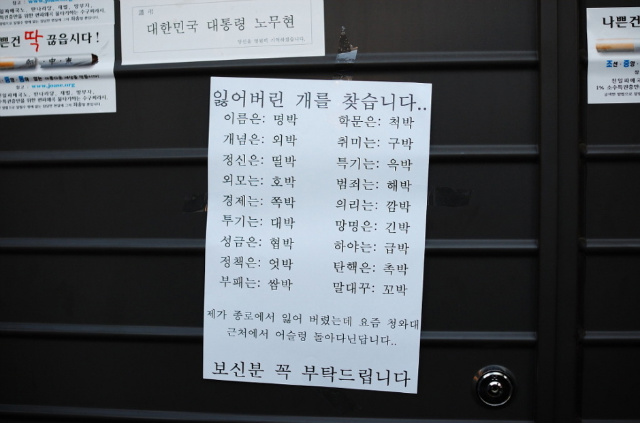 쁜건 딱 끊읍시다!
www.joase.org
대한민국 대통령 노무현
나쁜건
잃어버린 개를 찾습니다..
이름은: 명박 학문은: 척박
개념은: 외박 취미는: 구박
정신은: 띨박 특기는: 윽박
외모는: 호박 범죄는: 해박
경제는: 쪽박 의리는: 깜박
투기는: 대박 망명은: 긴박
성금은: 협박 하야는: 급박
정책은: 엇박 탄핵은: 촉박
부패는: 쌈박 말대꾸: 꼬박
제가 종로에서 잃어 버렸는데 요즘 청와대
근처에서 어슬렁 돌아다닌답니다..
보신분 꼭 부탁드립니다